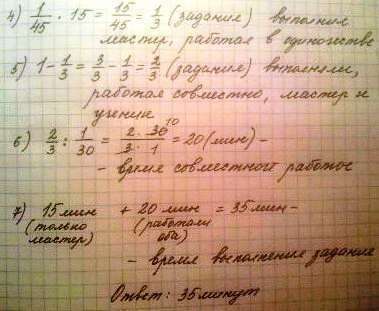 4) 1/45 · 15 = 15/45 = 1/3 (задание) выполнил
мастер, работая в одиночестве
5) 1 - 1/3 = 3/3 - 1/3 = 2/3 (задание) выполняли,
работая совместно, мастер и
ученик
6) 2/3 : 1/30 = 2·30/3·1 10 = 20 (мин) -
- время совместной работы
7) 15 мин + 20 мин = 35 мин -
(только (работали
мастер) оба)
- время выполнения задание
Ответ: 35 минут